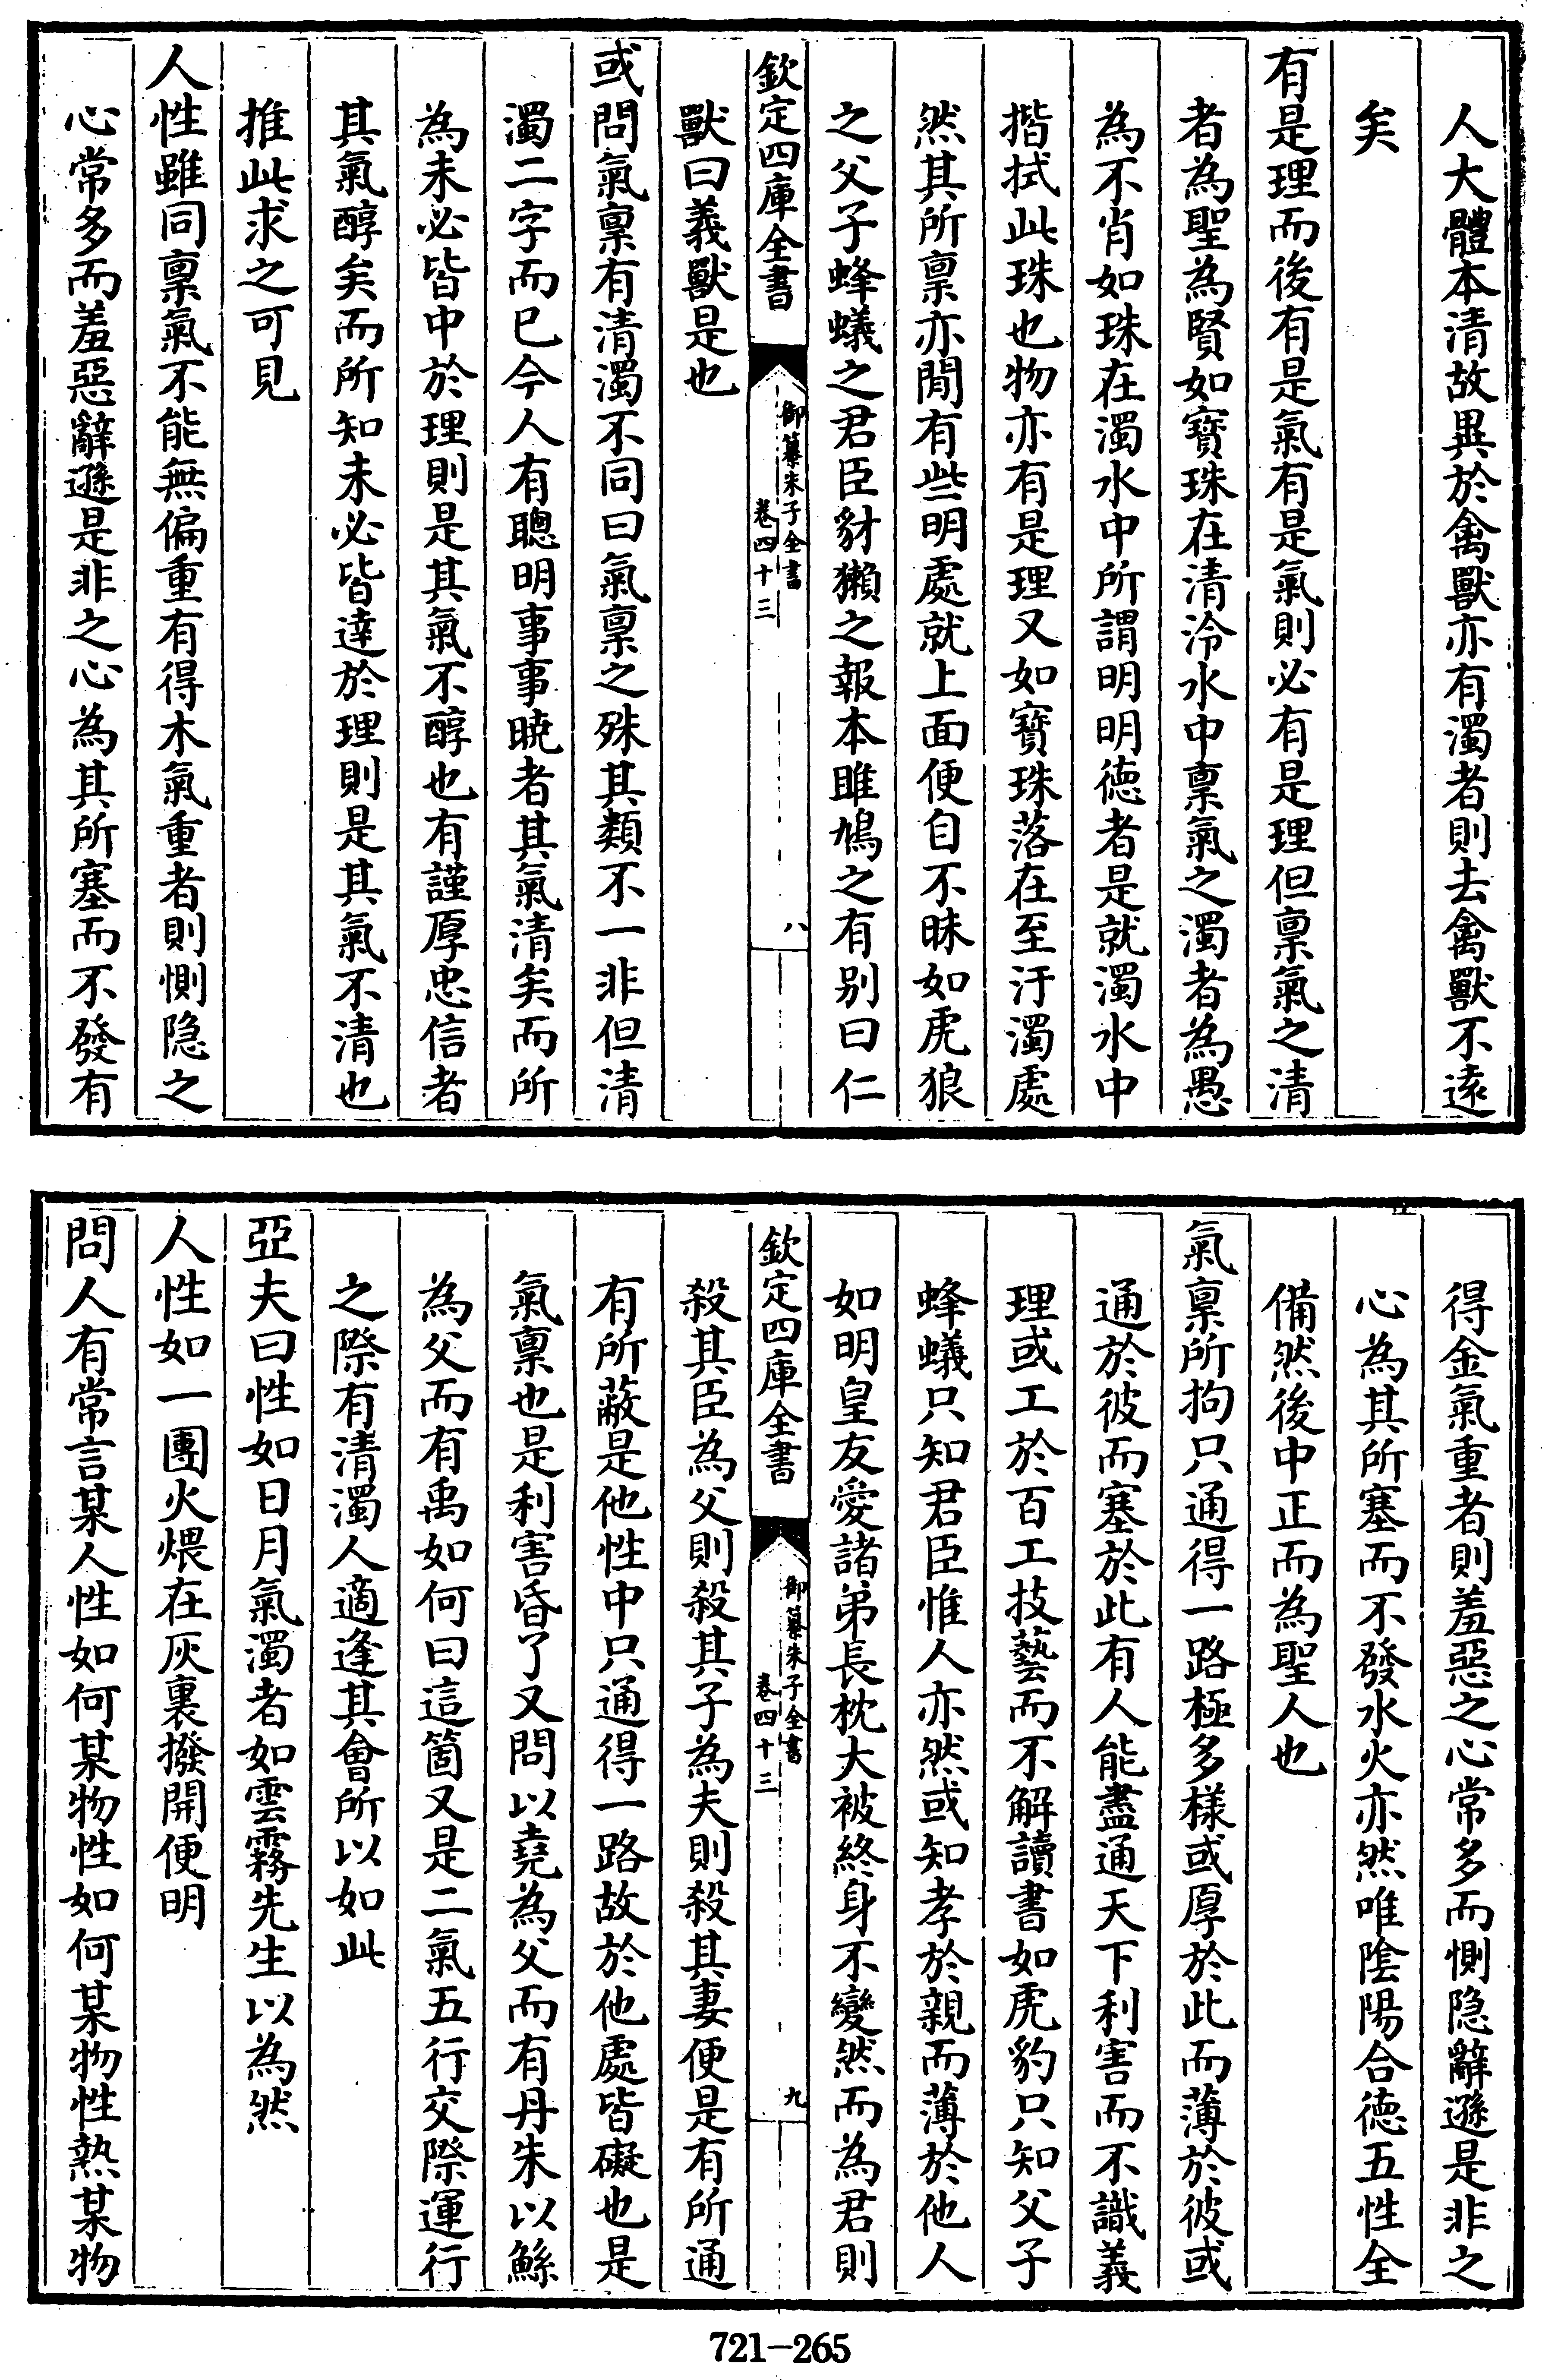 人大體本清故異於禽獸亦有濁者則去禽獸不遠
矣
有是理而後有是氣有是氣則必有是理但稟氣之清
者為聖為賢如寶珠在清泠水中稟氣之濁者為愚
為不肖如珠在濁水中所謂明明徳者是就濁水中
揩拭此珠也物亦有是理又如寶珠落在至汙濁處
然其所稟亦閒有些明處就上面便自不昧如虎狼
之父子蜂蟻之君臣豺獺之報本雎鳩之有别曰仁
欽定四庫全書
御纂朱子全書
卷四十三
八
獸曰義獸是也
或問氣稟有清濁不同曰氣稟之殊其類不一非但清
濁二字而已今人有聰明事事曉者其氣清矣而所
為未必皆中於理則是其氣不醇也有謹厚忠信者
其氣醇矣而所知未必皆達於理則是其氣不清也
推此求之可見
人性雖同稟氣不能無偏重有得木氣重者則惻隐之
心常多而羞惡辭遜是非之心為其所塞而不發有
得金氣重者則羞惡之心常多而惻隐辭遜是非之
心為其所塞而不發水火亦然唯陰陽合徳五性全
備然後中正而為聖人也
氣稟所拘只通得一路極多樣或厚於此而薄於彼或
通於彼而塞於此有人能盡通天下利害而不識義
理或工於百工技藝而不解讀書如虎豹只知父子
蜂蟻只知君臣惟人亦然或知孝於親而薄於他人
如明皇友愛諸弟長枕大被終身不變然而為君則
欽定四庫全書
御纂朱子全書
卷四十三
九
殺其臣為父則殺其子為夫則殺其妻便是有所通
有所蔽是他性中只通得一路故於他處皆礙也是
氣稟也是利害昏了又問以堯為父而有丹朱以鯀
為父而有禹如何曰這箇又是二氣五行交際運行
之際有清濁人適逢其會所以如此
亞夫曰性如日月氣濁者如雲霧先生以為然
人性如一團火煨在灰裏撥開便明
問人有常言某人性如何某物性如何某物性熱某物
721-265